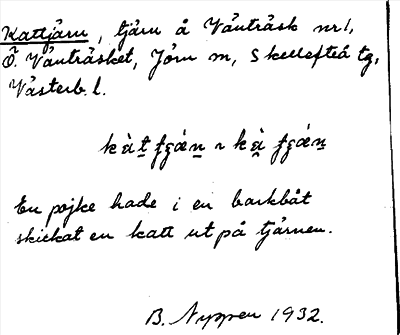 Kattjärn, tjärn å Vänträsk nr 1,
Ö. Vänträsket, Jörn sn, Skellefteå tg,
Västerb. l.
En pojke hade i en barkbåt
skickat en katt ut på tjärnen.
B. Nyppen 1932.